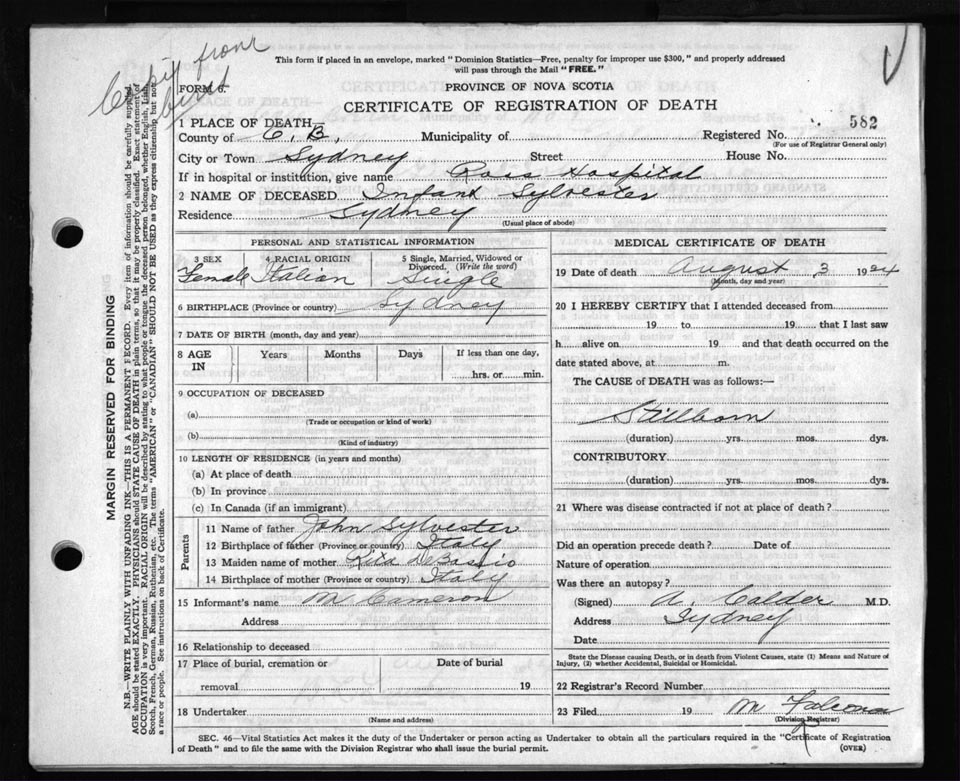 This form if placed in an envelope, marked "Dominion Statistics—Free, penalty for improper use $300," and properly addressed
will pass through the Mail "FREE."
from
birth
FORM 6.
PROVINCE OF NOVA SCOTIA
CERTIFICATE OF REGISTRATION OF DEATH
1 PLACE OF DEATH—
County of C. B. Municipality of Registered No. 582
(For use of Registrar General only)
City or Town Sydney Street House No.
If in hospital or institution, give name Ross Hospital
2 NAME OF DECEASED Infant Sylvester
Residence Sydney
(Usual place of abode)
PERSONAL AND STATISTICAL INFORMATION
3 SEX 4 RACIAL ORIGIN 5 Single, Married, Widowed or
Divorced. (Write the word)
Female Italian Single
6 BIRTHPLACE (Province or country) Sydney
7 DATE OF BIRTH (month, day and year)
8 AGE Years Months Days If less than one day,
IN hrs. or min.
9 OCCUPATION OF DECEASED
(a)
(Trade or occupation or kind of work)
(b)
(Kind of industry)
10 LENGTH OF RESIDENCE (in years and months)
(a) At place of death
(b) In province
(c) In Canada (if an immigrant)
Parents
11 Name of father John Sylvester
12 Birthplace of father (Province or country) Italy
13 Maiden name of mother Rita
14 Birthplace of mother (Province or country) Italy
15 Informant's name M Cameron
Address
16 Relationship to deceased
17 Place of burial, cremation or Date of burial
removal 19
18 Undertaker
(Name and address)
MEDICAL CERTIFICATE OF DEATH
19 Date of death August 3 1924
(Month, day and year)
20 I HEREBY CERTIFY that I attended deceased from
19 to 19 that I last saw
h alive on 19 and that death occurred on the
date stated above, at m.
The CAUSE of DEATH was as follows:—
Stillborn
(duration) yrs. mos. dys.
CONTRIBUTORY
(duration) yrs. mos. dys.
21 Where was disease contracted if not at place of death?
Did an operation precede death? Date of
Nature of operation
Was there an autopsy?
(Signed) A. Calder M.D.
Address Sydney
Date
State the Disease causing Death, or in death from Violent Causes, state (1) Means and Nature of
Injury, (2) whether Accidental, Suicidal or Homicidal.
22 Registrar's Record Number
23 Filed 19 M
(Division Registrar)
SEC. 46—Vital Statistics Act makes it the duty of the Undertaker or person acting as Undertaker to obtain all the particulars required in the "Certificate of Registration
of Death" and to file the same with the Division Registrar who shall issue the burial permit. (OVER)
MARGIN RESERVED FOR BINDING
N.B.—WRITE PLAINLY WITH UNFADING INK—THIS IS A PERMANENT RECORD. Every item of information should be carefully supplied.
AGE should be stated EXACTLY. PHYSICIANS should STATE CAUSE OF DEATH in plain terms, so that it may be properly classified. Exact statement of
OCCUPATION is very important. RACIAL ORIGIN will be described by stating to what people or tongue the deceased person belonged, whether English, Irish,
Scotch, French, German, Russian, Ruthenian, etc. The terms "AMERICAN" or "CANADIAN" SHOULD NOT BE USED as they express citizenship but not
a race or people. See instructions on back of Certificate.